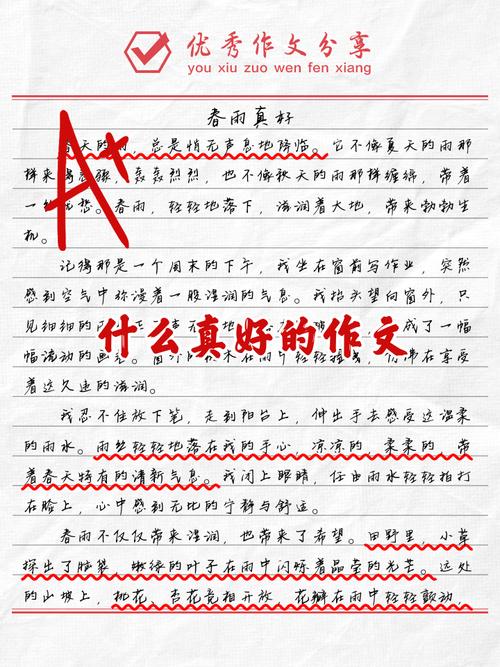 优秀作文分享
you xiu zuo wen fen xiang
春雨真好
A+
天的，总是悄无声息地降临。它不像夏天的雨那
样来，轰轰烈烈，也不像秋天的雨那样缠绵，带着
一。春雨，轻轻地落下，滋润着大地，带来勃勃生
机。
记得那是一个周末的下午，我坐在窗前写作业，突然
感到空气中弥漫着一股湿润的气息。我抬头望向窗外，只
见细细的成了一幅
什么真好的作文
幅流动的在享受
着这久违的滋润。
我忍不住放下笔，走到阳台上，伸出手去感受这温柔
的雨水。雨丝轻轻地落在我的手心，凉凉的，柔柔的，带
着春天特有的清新气息。我闭上眼睛，任由雨水轻轻拍打
在脸上，心中感到无比的宁静与舒适。
春雨不仅仅带来湿润，也带来了希望。田野里，小草
探出了脑袋，嫩绿的叶子在雨中闪烁着晶莹的光芒。远处
的山坡上，桃花、杏花竞相开放，花瓣在雨中轻轻颤动，